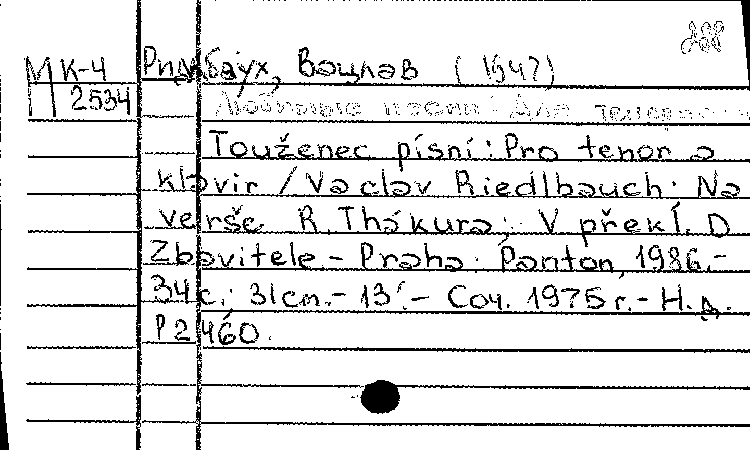 МК-4 Ридлбаух, Вацлав (1947)
2534 Любовные песни: Для тенора
Touženec písní: Pro tenor a
klavir / Vaclav Riedlbauch. Na
verše R. Thákura; V překl. D
Zbavitele. - Praha: Panton, 1986. -
34 с.; 31cm. - 13'. - Соч. 1975 г. - Н.д.
P2460.